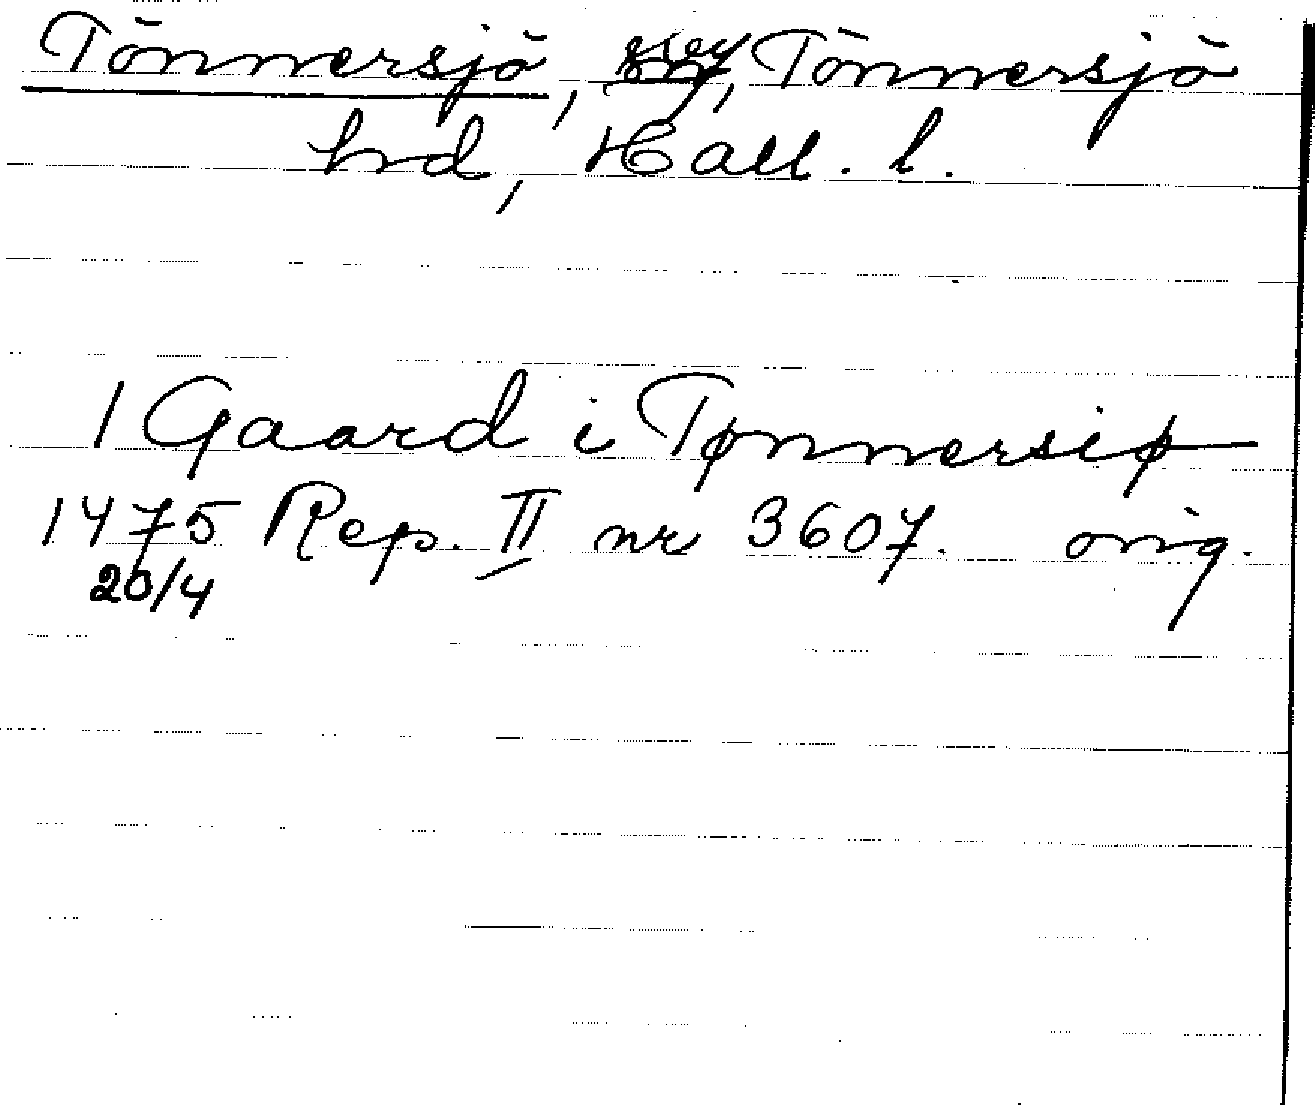 Tönnersjö, sn, Tönnersjö
hd, Hall. l.
1 Gaard i Tønnersiø
1475 Rep. II nr 3607. orig.
20/4